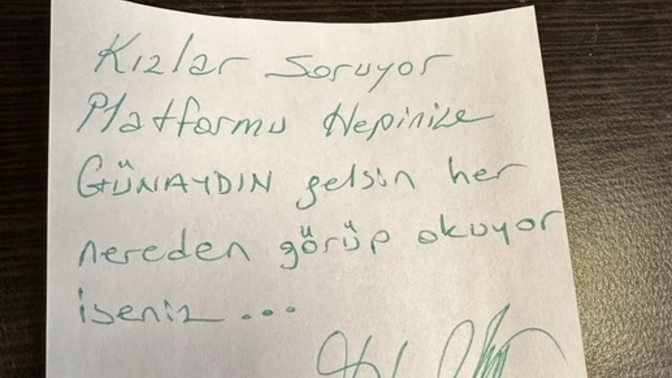 Kızlar Soruyor
Platformu Hepinize
GÜNAYDIN gelsin her
nereden görüp okuyor
iseniz...